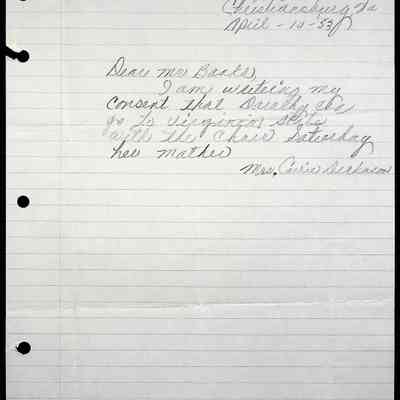 Christiansburg Va
April - 10 - 53
Dear Mr Banks,
I am writeing my
consent that Dorothy can
go to Virginia State
with the Choir Saturday
her mother
Mrs. Carrie Dickerson